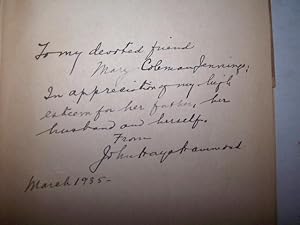 To my devoted friend
Mary Coleman Jennings,
In appreciation of my high
esteem for her father, her
husband and herself.
From
John Hays Hammond
March 1935-